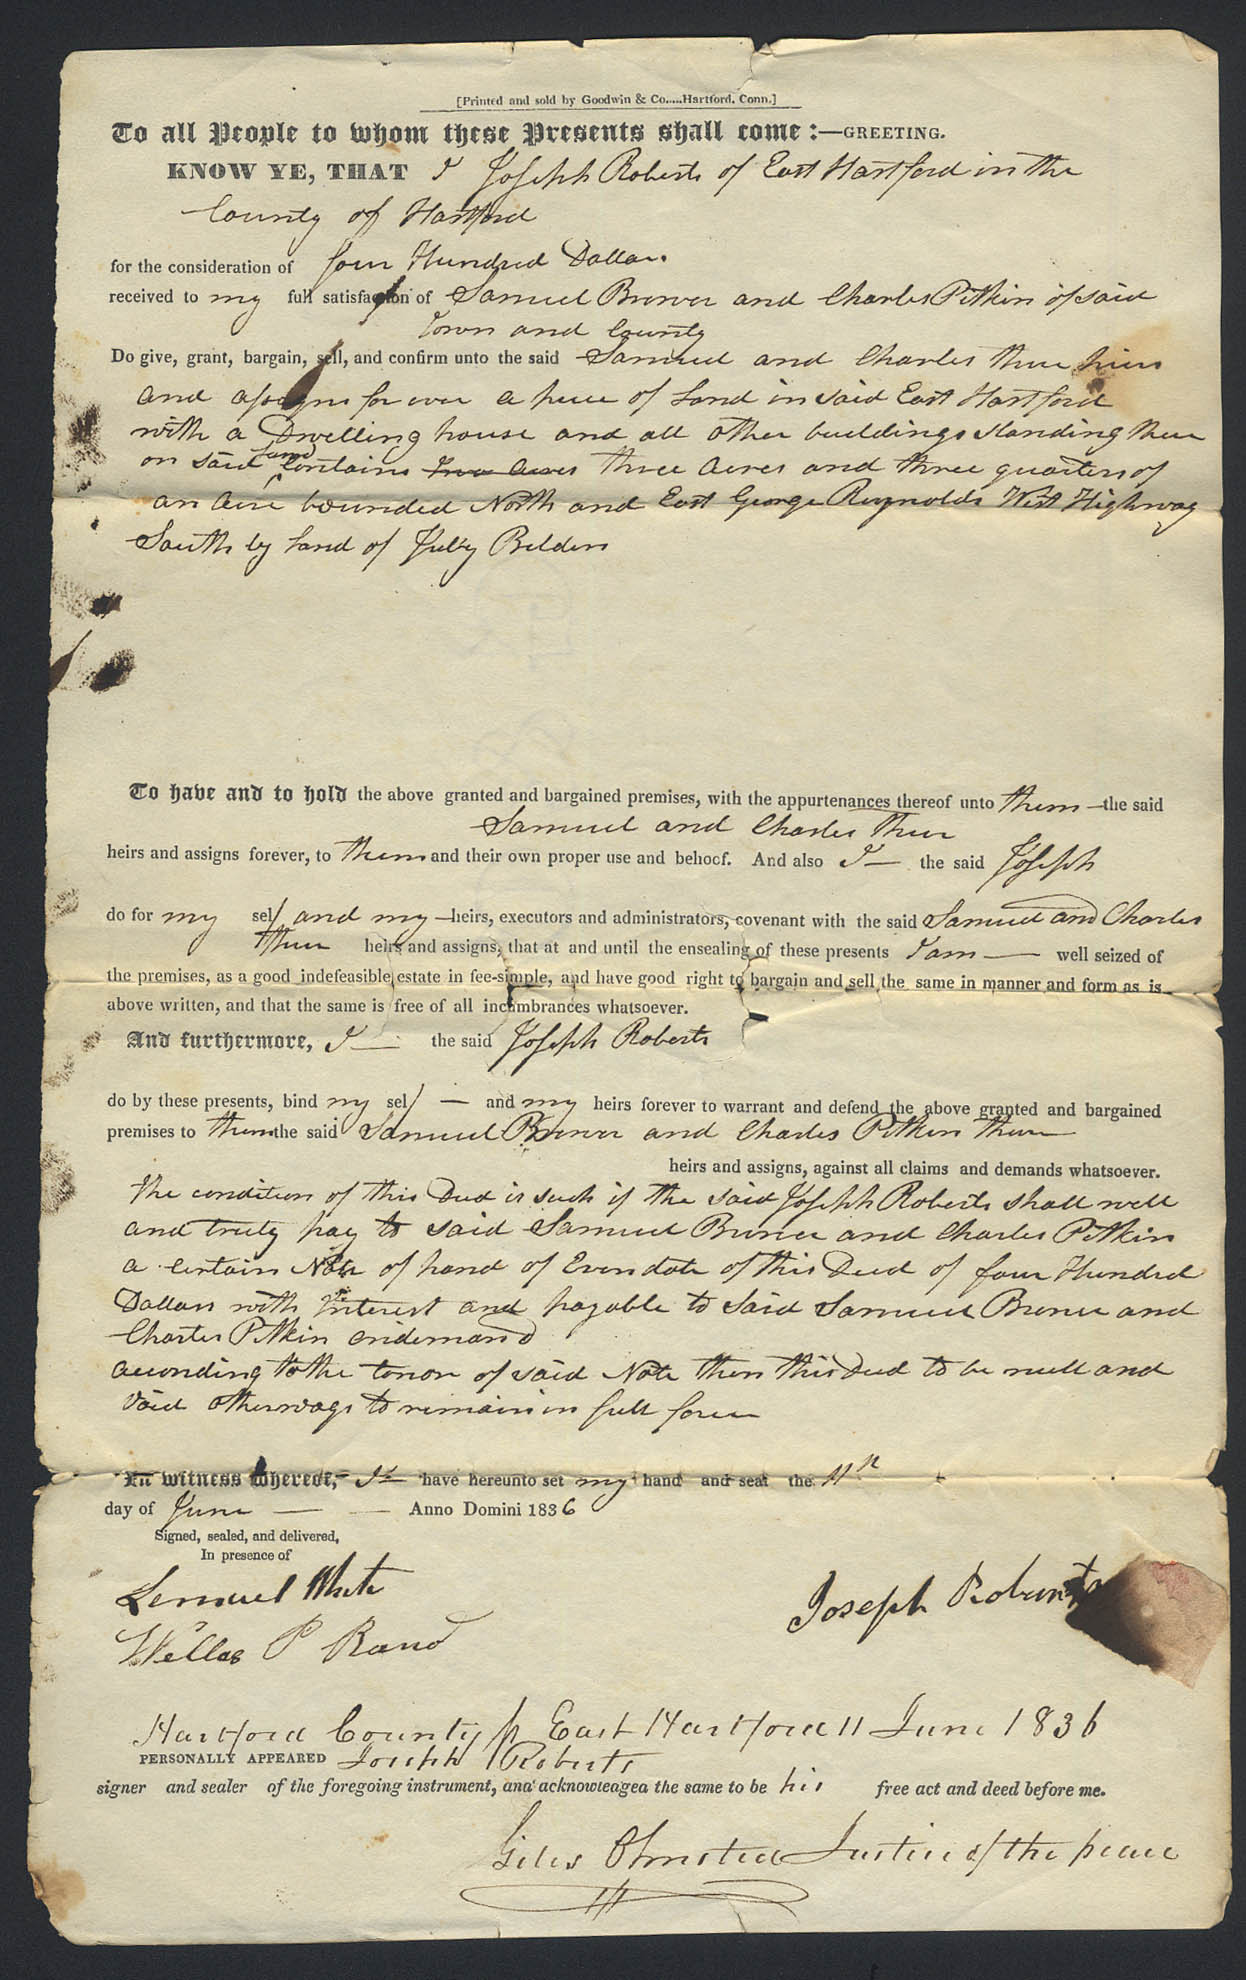 [Printed and sold by Goodwin & Co.....Hartford, Conn.]
To all People to whom these Presents shall come:—GREETING.
KNOW YE, THAT I Joseph Roberts of East Hartford in the
County of Hartford
for the consideration of four Hundred Dollars
received to my full satisfaction of Samuel Brewer and Charles Pitkin of said
Town and County
Do give, grant, bargain, sell, and confirm unto the said Samuel and Charles there hiers
and assigns for ever a peice of Land in said East Hartford
with a Dwelling house and all other buildings standing there
on said Land Contains two acres three acres and three quarters of
an acre bounded North and East George Reynolds West Highway
South by Land of Belden
To have and to hold the above granted and bargained premises, with the appurtenances thereof unto them the said
Samuel and Charles there
heirs and assigns forever, to them and their own proper use and behoof. And also I the said Joseph
do for my self and my heirs, executors and administrators, covenant with the said Samuel and Charles
there heirs and assigns, that at and until the ensealing of these presents I am well seized of
the premises, as a good indefeasible estate in fee-simple, and have good right to bargain and sell the same in manner and form as is
above written, and that the same is free of all incumbrances whatsoever.
And furthermore, I the said Joseph Roberts
do by these presents, bind my self and my heirs forever to warrant and defend the above granted and bargained
premises to them the said Samuel Brewer and Charles Pitkin there
heirs and assigns, against all claims and demands whatsoever.
the condition of this Deed is such if the said Joseph Roberts shall well
and truly pay to said Samuel Brewer and Charles Pitkin
a certain Note of hand of Even date of this Deed of four Hundred
Dollars with interest and payable to said Samuel Brewer and
Charles Pitkin on demand
according to the tenor of said Note then this Deed to be null and
void otherways to remain in full force
In witness whereof, I have hereunto set my hand and seal the 11th
day of June Anno Domini 1836
Signed, sealed, and delivered,
In presence of
Lemuel White
Joseph Roberts
Welles P Rand
Hartford County ss East Hartford 11 June 1836
PERSONALLY APPEARED Joseph Roberts
signer and sealer of the foregoing instrument, and acknowledged the same to be his free act and deed before me.
Giles Olmsted Justice of the peace